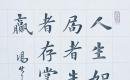 人生如
局者生
者存掌
赢